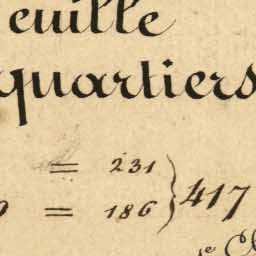 euille
quartiers
= 231 } 417
= 186